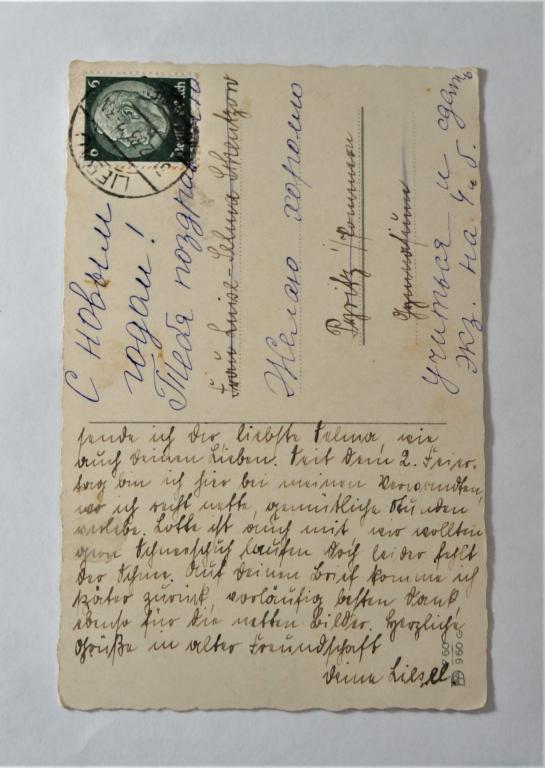 С новым
годом!
Тебя поздравляю
Frau Luise-Selma
Желаю хорошо
Pyritz/Pommern
Gymnasium
учиться и сдать
экз. на 4 и 5.
sende ich dir, liebste Selma, wie
auch deinen Lieben. Seit dem 2. Feier-
tag bin ich hier bei meinen Verwandten,
wo ich recht nette, gemütliche Stunden
verlebe. Lotte ist auch mit, wir wollten
gern Schneeschuh laufen doch leider fehlt
der Schnee. Auf deinen Brief komme ich
später zurück, vorläufig besten Dank
ebenso für die netten Bilder. Herzliche
Grüße in alter Freundschaft
deine Liesel.
6
6
Deutsches Reich
960